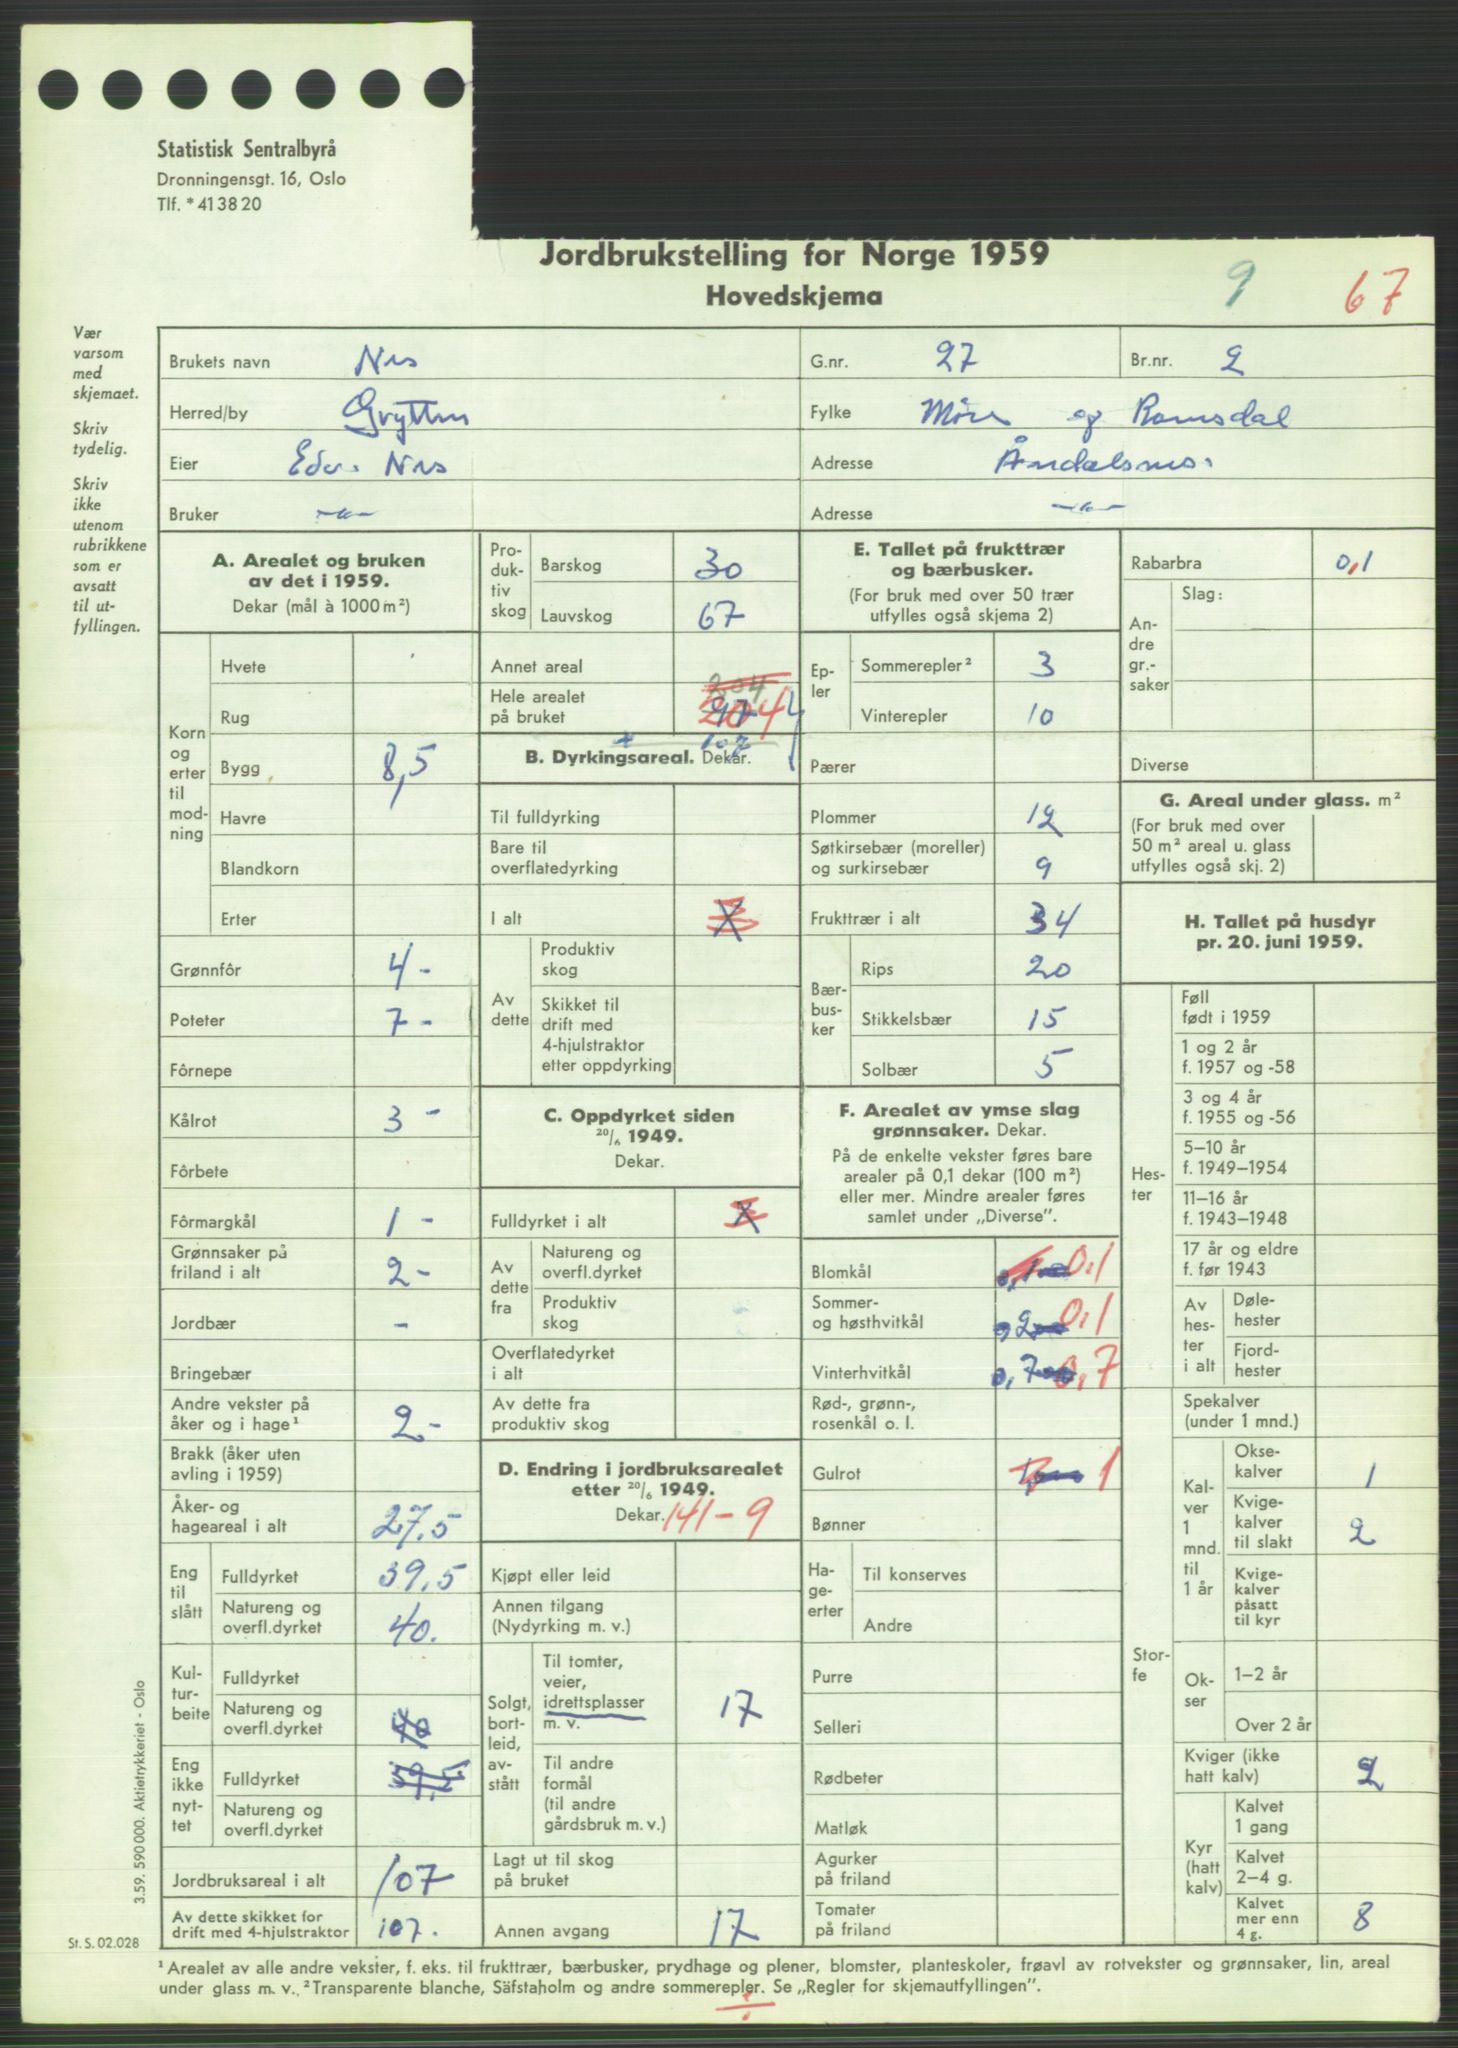 Statistisk Sentralbyrå
Dronningensgt. 16, Oslo
Tlf. * 41 38 20
Jordbrukstelling for Norge 1959
Hovedskjema
9 67
Vær
varsom
med
skjemaet.
Skriv
tydelig.
Skriv
ikke
utenom
rubrikkene
som er
avsatt
til ut-
fyllingen.
Brukets navn Nes G.nr. 27 Br.nr. 2
Herred/by Grytten Fylke Møre og Romsdal
Eier Edv. Nes Adresse Åndalsnes.
Bruker —"— Adresse —"—
A. Arealet og bruken
av det i 1959.
Dekar (mål à 1000 m²)
Korn
og
erter
til
mod-
ning
Hvete
Rug
Bygg 8,5
Havre
Blandkorn
Erter
Grønnfôr 4 -
Poteter 7 -
Fôrnepe
Kålrot 3 -
Fôrbete
Fôrmargkål 1 -
Grønnsaker på
friland i alt 2 -
Jordbær -
Bringebær
Andre vekster på
åker og i hage¹ 2 -
Brakk (åker uten
avling i 1959)
Åker- og
hageareal i alt 27,5
Eng
til
slått
Fulldyrket 39,5
Natureng og
overfl.dyrket 40.
Kul-
tur-
beite
Fulldyrket
Natureng og
overfl.dyrket 40
Eng
ikke
nyt-
tet
Fulldyrket 39,5
Natureng og
overfl.dyrket
Jordbruksareal i alt 107
Av dette skikket for
drift med 4-hjulstraktor 107.
Pro-
duk-
tiv
skog
Barskog 30
Lauvskog 67
Annet areal
Hele arealet 204
på bruket 97 204
+ 107
B. Dyrkingsareal. Dekar.
Til fulldyrking
Bare til
overflatedyrking
I alt X
Av
dette
Produktiv
skog
Skikket til
drift med
4-hjulstraktor
etter oppdyrking
C. Oppdyrket siden
20/6 1949.
Dekar.
Fulldyrket i alt X
Av
dette
fra
Natureng og
overfl.dyrket
Produktiv
skog
Overflatedyrket
i alt
Av dette fra
produktiv skog
D. Endring i jordbruksarealet
etter 20/6 1949.
Dekar. 141 - 9
Kjøpt eller leid
Annen tilgang
(Nydyrking m. v.)
Solgt,
bort-
leid,
av-
stått
Til tomter,
veier,
idrettsplasser
m. v. 17
Til andre
formål
(til andre
gårdsbruk m. v.)
Lagt ut til skog
på bruket
Annen avgang 17
E. Tallet på frukttrær
og bærbusker.
(For bruk med over 50 trær
utfylles også skjema 2)
Ep-
ler
Sommerepler² 3
Vinterepler 10
Pærer
Plommer 12
Søtkirsebær (moreller)
og surkirsebær 9
Frukttrær i alt 34
Bær-
bus-
ker
Rips 20
Stikkelsbær 15
Solbær 5
F. Arealet av ymse slag
grønnsaker. Dekar.
På de enkelte vekster føres bare
arealer på 0,1 dekar (100 m²)
eller mer. Mindre arealer føres
samlet under „Diverse”.
Blomkål 0,1
Sommer-
og høsthvitkål 0,2 0,1
Vinterhvitkål 0,7 0,7
Rød-, grønn-,
rosenkål o. l.
Gulrot 1
Bønner
Ha-
ge-
erter
Til konserves
Andre
Purre
Selleri
Rødbeter
Matløk
Agurker
på friland
Tomater
på friland
Rabarbra 0,1
An-
dre
gr.-
saker
Slag:
Diverse
G. Areal under glass. m²
(For bruk med over
50 m² areal u. glass
utfylles også skj. 2)
H. Tallet på husdyr
pr. 20. juni 1959.
Hes-
ter
Føll
født i 1959
1 og 2 år
f. 1957 og -58
3 og 4 år
f. 1955 og -56
5–10 år
f. 1949–1954
11–16 år
f. 1943–1948
17 år og eldre
f. før 1943
Av
hes-
ter
i alt
Døle-
hester
Fjord-
hester
Stor-
fe
Spekalver
(under 1 mnd.)
Kal-
ver
1
mnd.
til
1 år
Okse-
kalver 1
Kvige-
kalver
til slakt 2
Kvige-
kalver
påsatt
til kyr
Ok-
ser
1–2 år
Over 2 år
Kviger (ikke
hatt kalv) 2
Kyr
(hatt
kalv)
Kalvet
1 gang
Kalvet
2–4 g.
Kalvet
mer enn
4 g. 8
3.59. 590 000. Aktietrykkeriet - Oslo
St. S. 02.028
¹ Arealet av alle andre vekster, f. eks. til frukttrær, bærbusker, prydhage og plener, blomster, planteskoler, frøavl av rotvekster og grønnsaker, lin, areal
under glass m. v. ² Transparente blanche, Säfstaholm og andre sommerepler. Se „Regler for skjemautfyllingen”.